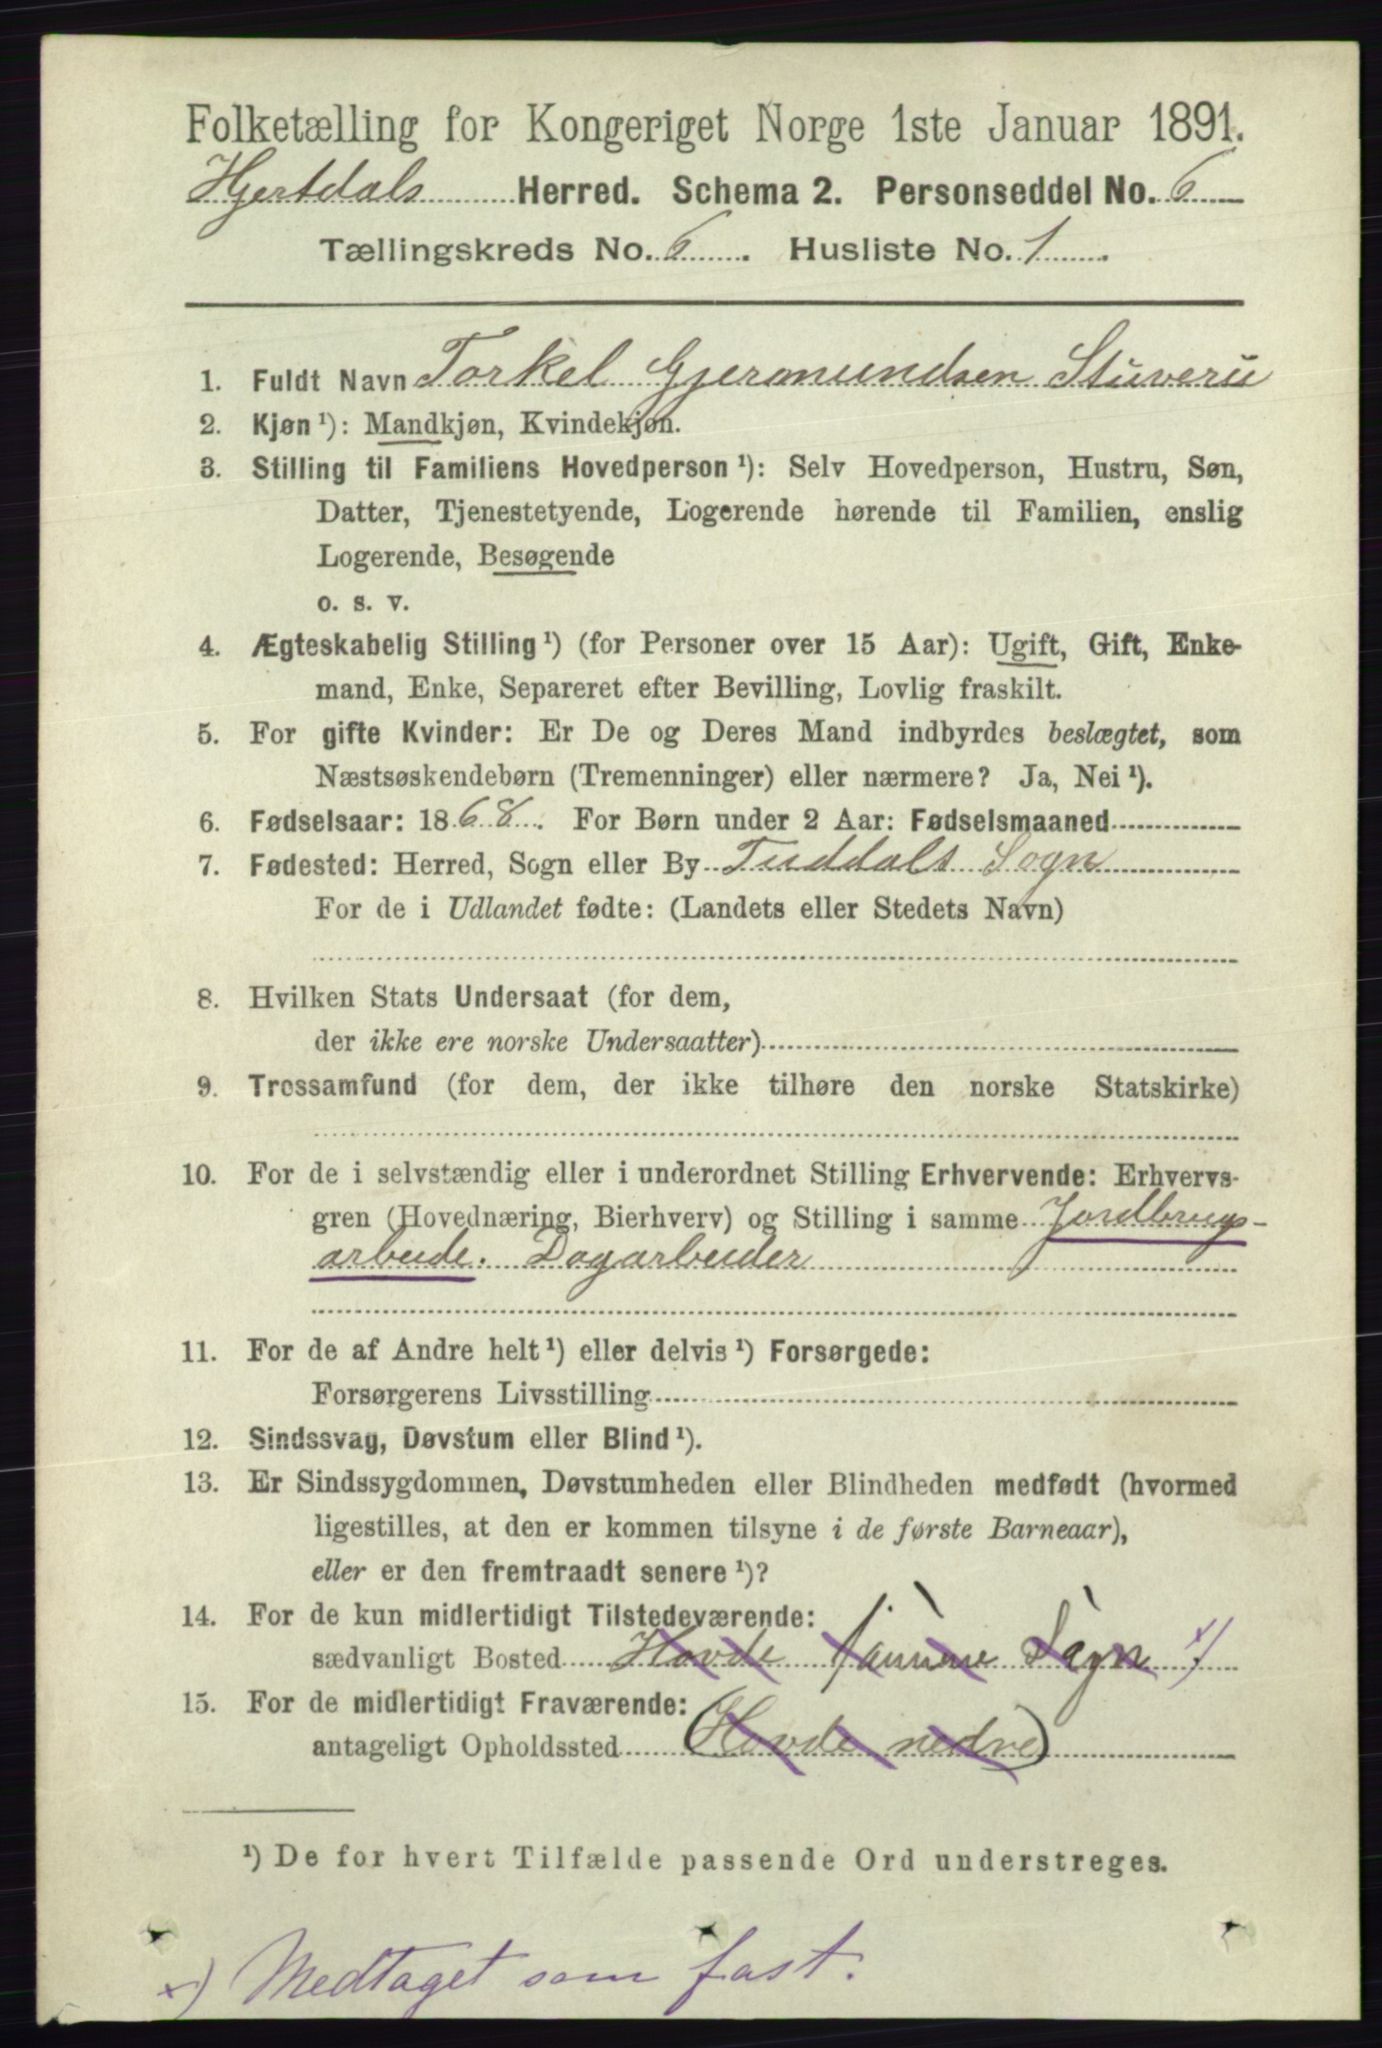 Folketælling for Kongeriget Norge 1ste Januar 1891.
Hjertdals Herred. Schema 2. Personseddel No. 6
Tællingskreds No. 6. Husliste No. 1.
1. Fuldt Navn Torkel Gjermundsen Stuveru
2. Kjøn¹): Mandkjøn, Kvindekjøn.
3. Stilling til Familiens Hovedperson¹): Selv Hovedperson, Hustru, Søn,
Datter, Tjenestetyende, Logerende hørende til Familien, enslig
Logerende, Besøgende
o. s. v.
4. Ægteskabelig Stilling¹) (for Personer over 15 Aar): Ugift, Gift, Enke-
mand, Enke, Separeret efter Bevilling, Lovlig fraskilt.
5. For gifte Kvinder: Er De og Deres Mand indbyrdes beslægtet, som
Næstsøskendebørn (Tremenninger) eller nærmere? Ja, Nei¹).
6. Fødselsaar: 1868. For Børn under 2 Aar: Fødselsmaaned
7. Fødested: Herred, Sogn eller By Tuddals Sogn
For de i Udlandet fødte: (Landets eller Stedets Navn)
8. Hvilken Stats Undersaat (for dem,
der ikke ere norske Undersaatter)
9. Trossamfund (for dem, der ikke tilhøre den norske Statskirke)
10. For de i selvstændig eller i underordnet Stilling Erhvervende: Erhvervs-
gren (Hovednæring, Bierhverv) og Stilling i samme Jordbrugs-
arbeide. Dagarbeider
11. For de af Andre helt¹) eller delvis¹) Forsørgede:
Forsørgerens Livsstilling
12. Sindssvag, Døvstum eller Blind¹).
13. Er Sindssygdommen, Døvstumheden eller Blindheden medfødt (hvormed
ligestilles, at den er kommen tilsyne i de første Barneaar),
eller er den fremtraadt senere¹)?
14. For de kun midlertidigt Tilstedeværende:
sædvanligt Bosted Hovde samme Sogn. x)
15. For de midlertidigt Fraværende:
antageligt Opholdssted (Hovde nedre)
¹) De for hvert Tilfælde passende Ord understreges.
x) Medtaget som fast.